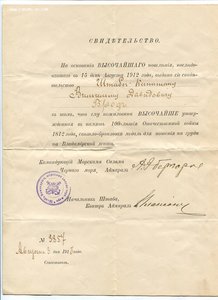 СВИДѢТЕЛЬСТВО.
На основаніи ВЫСОЧАЙШАГО повелѣнія, послѣдо-
вавшаго въ 15 день Августа 1912 года, выдано сіе свидѣ-
тельство Штабсъ-Капитану
Давидовичу
въ томъ, что ему пожалована ВЫСОЧАЙШЕ утверж-
денная въ память 100-лѣтія Отечественной войны
1812 года, свѣтло-бронзовая медаль для ношенія на груди
на Владимірской лентѣ.
Командующій Морскими Силами
Чернаго моря, Адмиралъ
Начальникъ Штаба,
Контръ Адмиралъ
№ 3857
Севастополь.